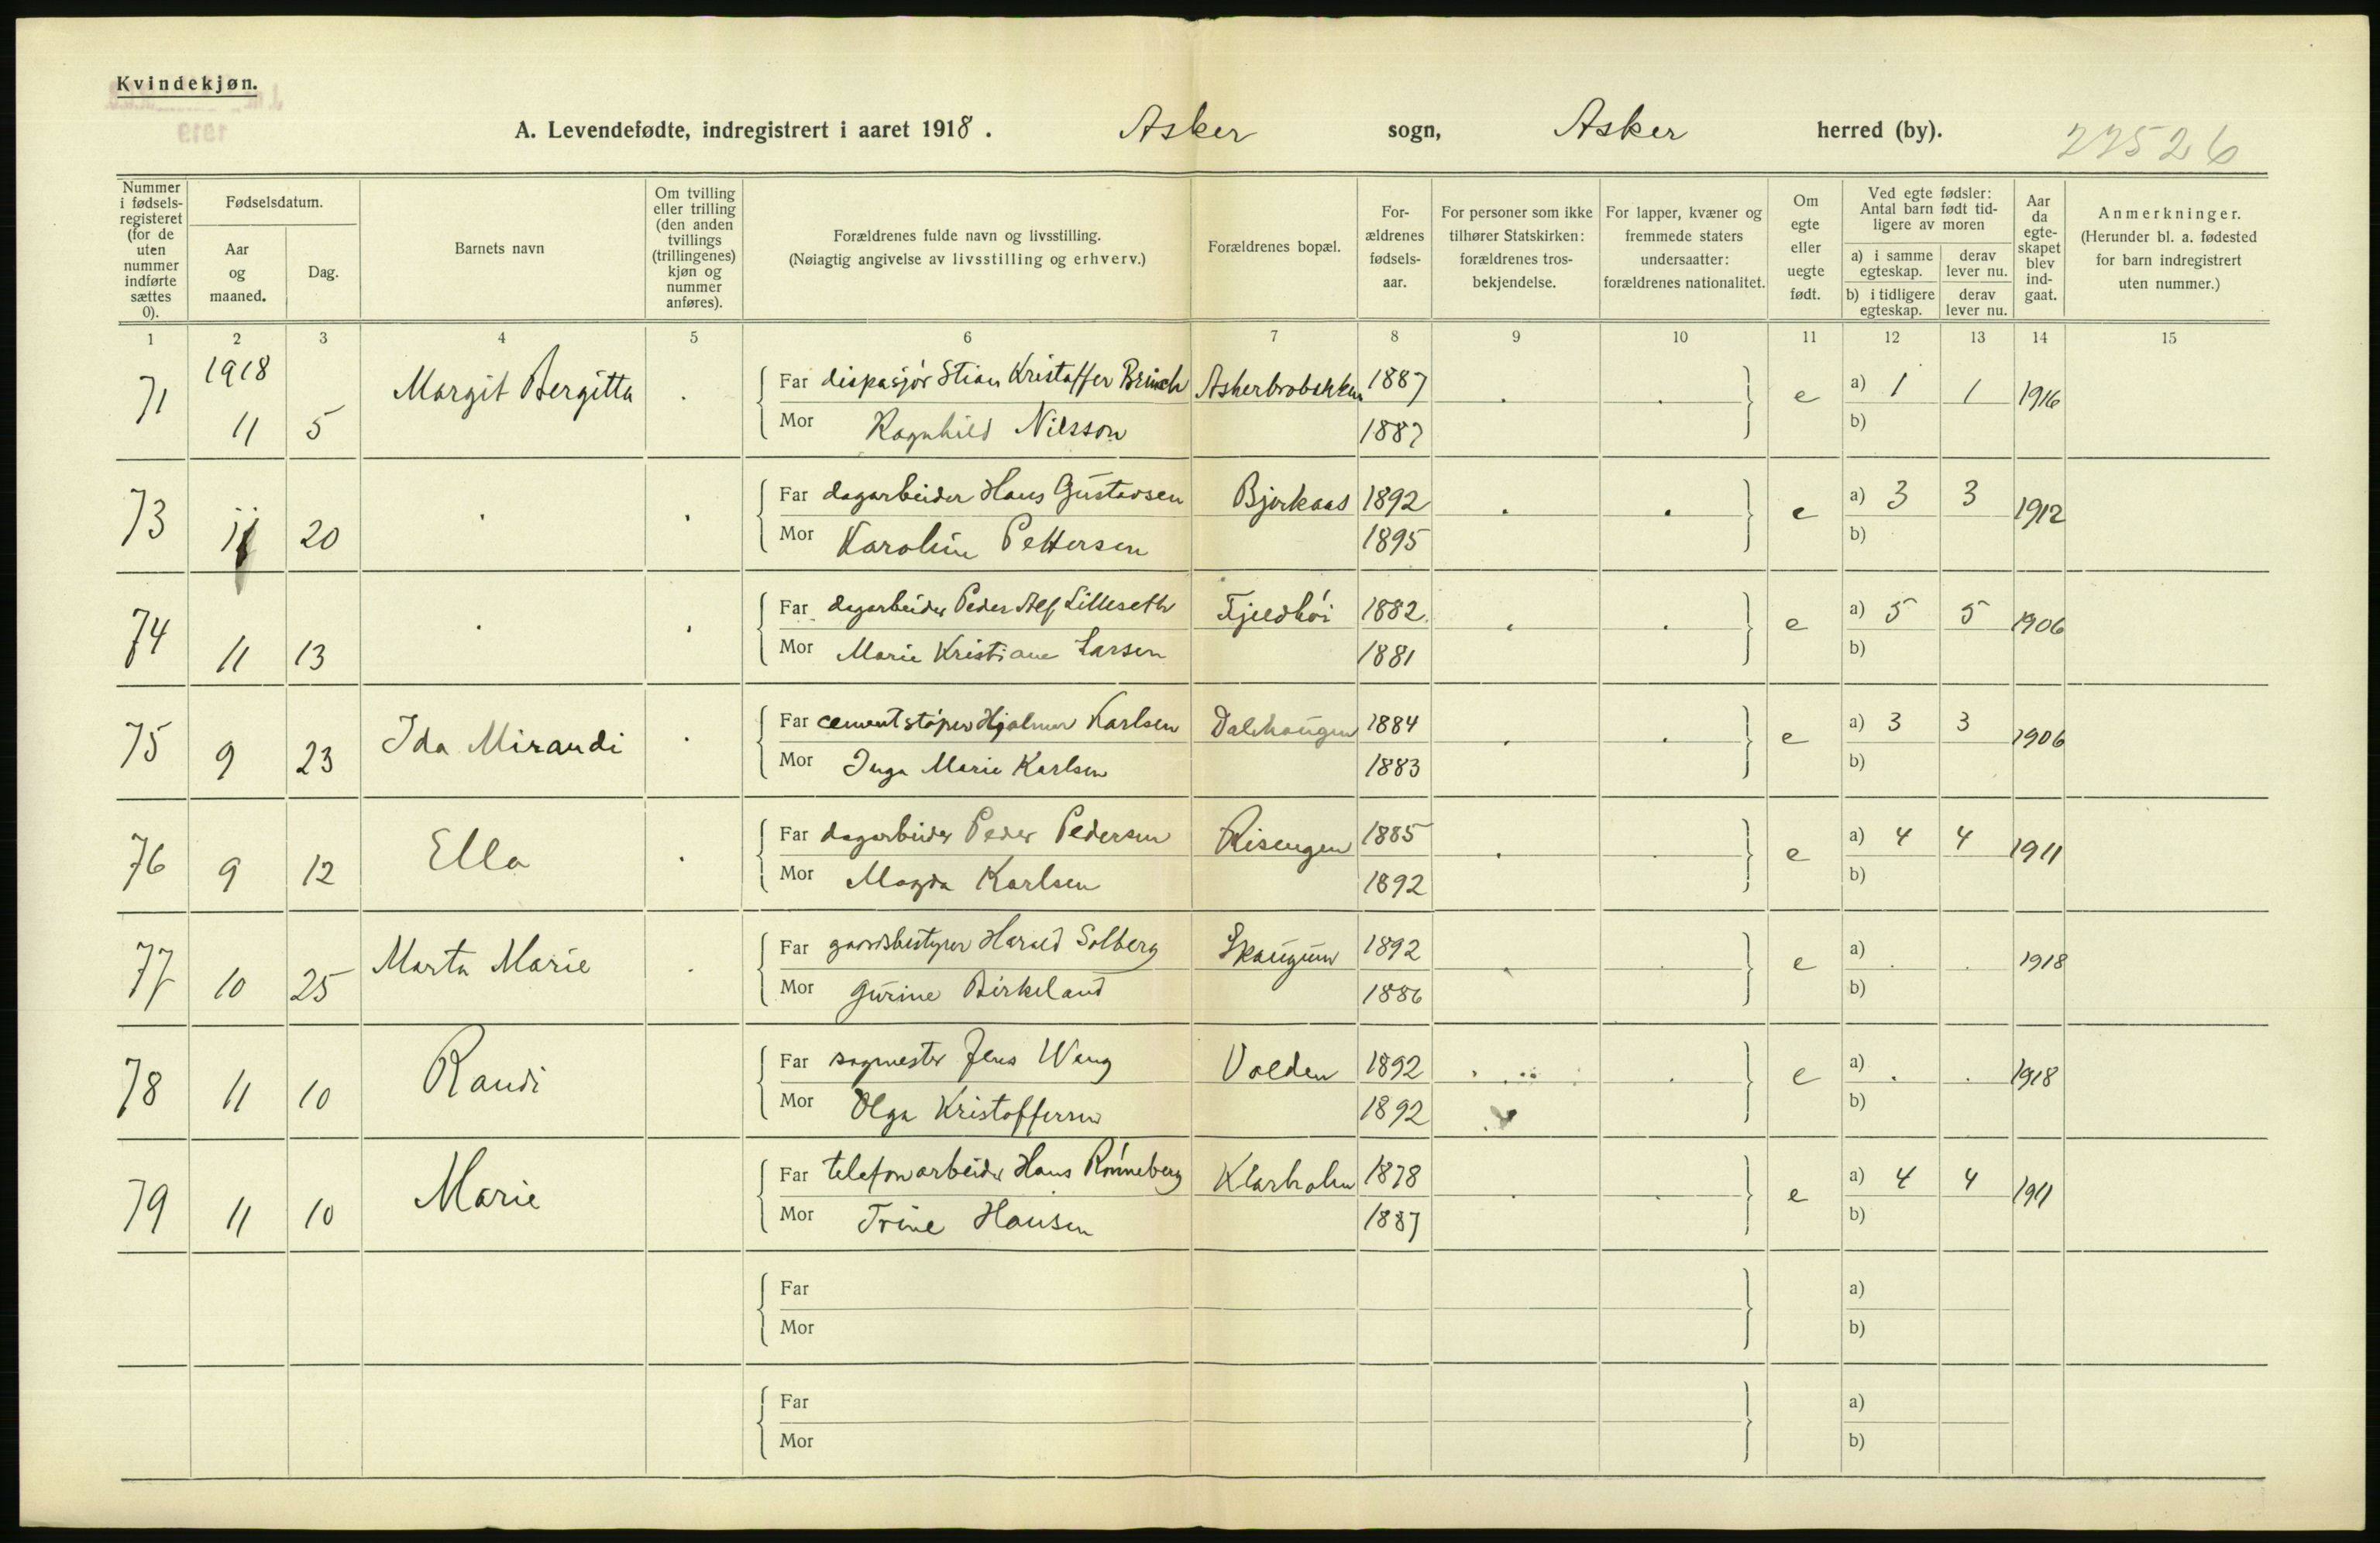 Kvindekjøn.
A. Levendefødte, indregistrert i aaret 1918. Asker sogn, Asker herred (by).
22526
Nummer i fødsels-registeret (for de uten nummer indførte sættes 0).
Fødselsdatum.
Aar og maaned.
Dag.
Barnets navn
Om tvilling eller trilling (den anden tvillings (trillingenes) kjøn og nummer anføres).
Forældrenes fulde navn og livsstilling.
(Nøiagtig angivelse av livsstilling og erhverv.)
Forældrenes bopæl.
For-ældrenes fødsels-aar.
For personer som ikke tilhører Statskirken: forældrenes tros-bekjendelse.
For lapper, kvæner og fremmede staters undersaatter: forældrenes nationalitet.
Om egte eller uegte født.
Ved egte fødsler: Antal barn født tid-ligere av moren
a) i samme egteskap.
derav lever nu.
b) i tidligere egteskap.
derav lever nu.
Aar da egte-skapet blev ind-gaat.
Anmerkninger.
(Herunder bl. a. fødested for barn indregistrert uten nummer.)
1 2 3 4 5 6 7 8 9 10 11 12 13 14 15
1918
71 11 5 Margit Bergitta . Far dispasjør Stian Kristoffer Brinch 1887 . . e a) 1 1 1916
Mor Ragnhild Nilsson 1887 b)
73 11 20 . . Far dagarbeider Hans Gustavsen Bjorkaas 1892 . . e a) 3 3 1912
Mor Karoline Pettersen 1895 b)
74 11 13 . . Far dagarbeider Peder Alf Lilleseth Fjeldhøi 1882 . . e a) 5 5 1906
Mor Marie Kristiane Larsen 1881 b)
75 9 23 Ida Mirandi . Far cementstøper Hjalmar Karlsen Dalshaugen 1884 . . e a) 3 3 1906
Mor Inga Marie Karlsen 1883 b)
76 9 12 Ella . Far dagarbeider Peder Pedersen Risengen 1885 . . e a) 4 4 1911
Mor Magda Karlsen 1892 b)
77 10 25 Marta Marie . Far gaardsbestyrer Harald Solberg Skaugum 1892 . . e a) . . 1918
Mor Gurine Birkeland 1886 b)
78 11 10 Randi Far sagmester Jens Weng Volden 1892 . . e a) . . 1918
Mor Olga Kristoffersen 1892 b)
79 11 10 Marie Far telefonarbeider Hans Rønneberg Klarholm 1878 . . e a) 4 4 1911
Mor Trine Hansen 1887 b)
Far a)
Mor b)
Far a)
Mor b)